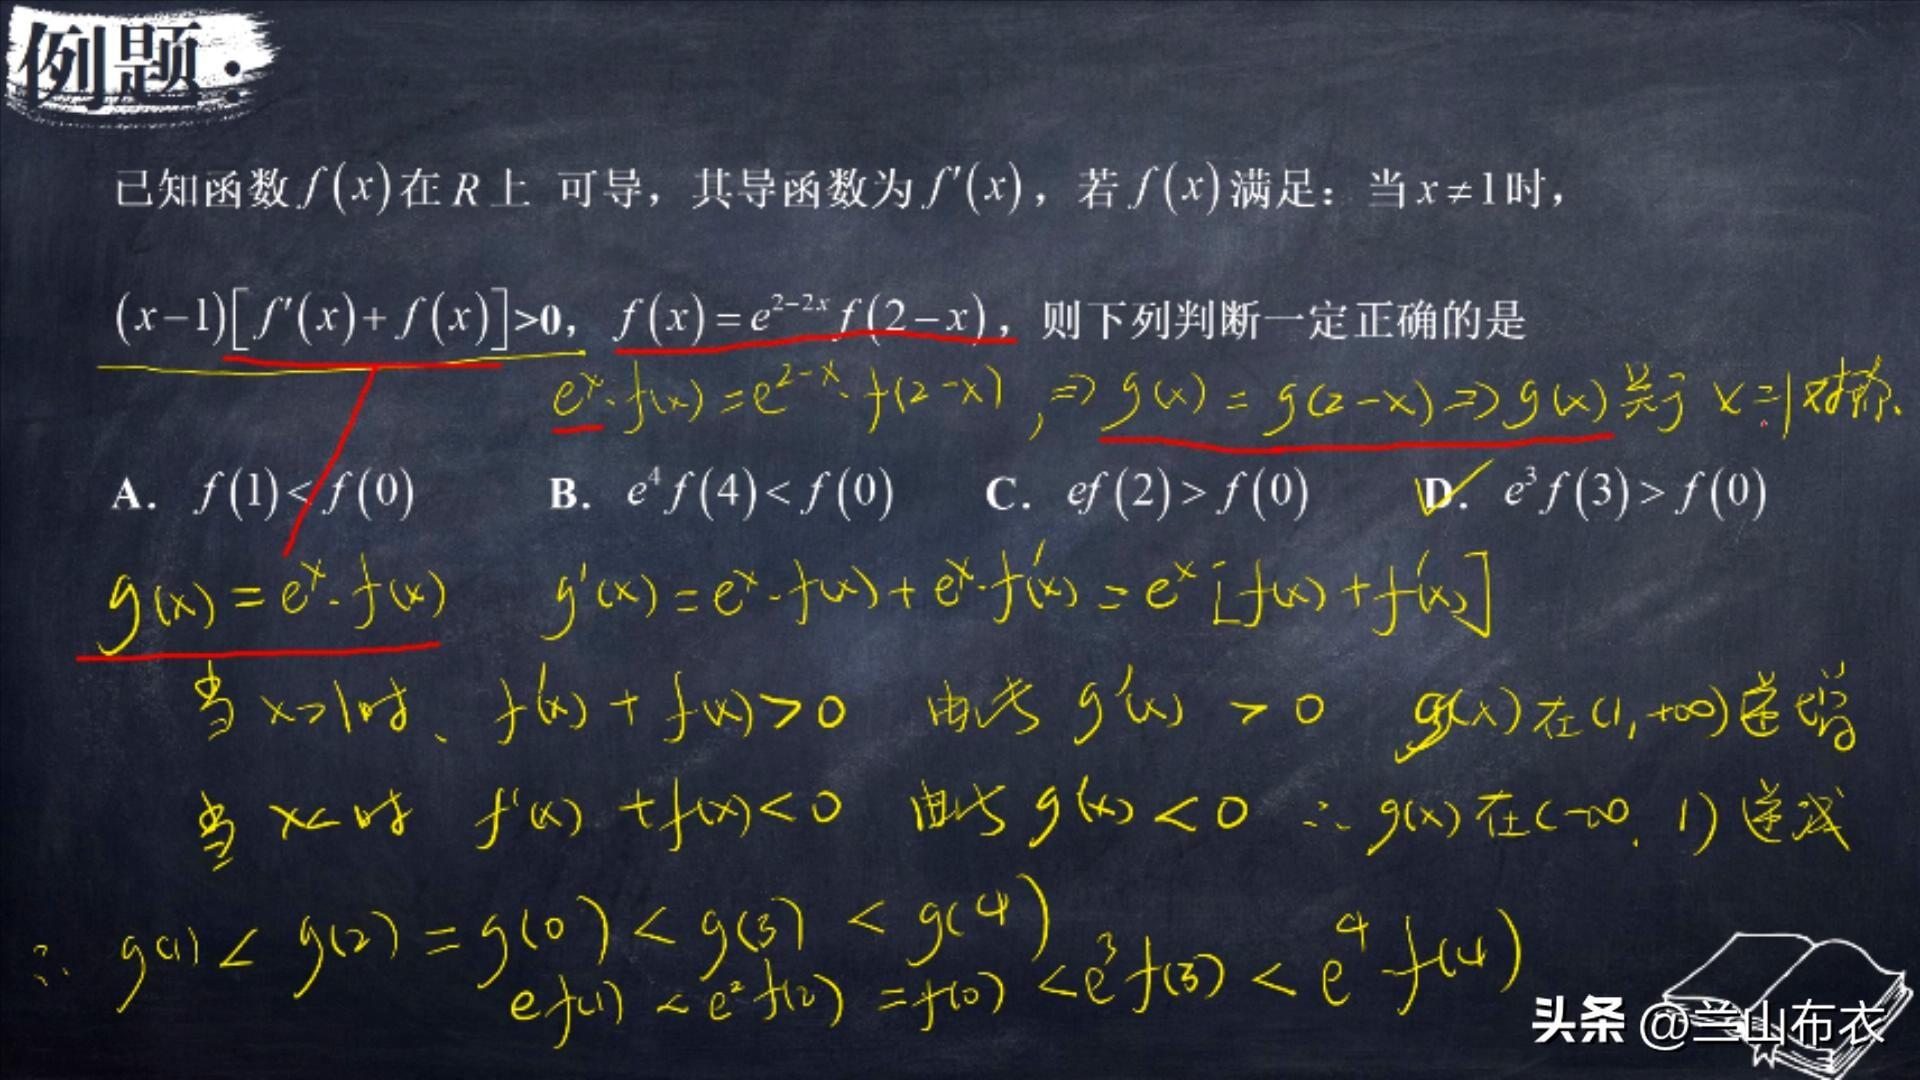 例题：
已知函数 f(x) 在 R 上 可导，其导函数为 f′(x)，若 f(x) 满足：当 x≠1 时，
(x−1)[f′(x)+f(x)]>0，f(x)=e^{2−2x}f(2−x)，则下列判断一定正确的是
e^x·f(x)=e^{2−x}·f(2−x)，⇒ g(x)=g(2−x)⇒g(x)关于 x=1对称、
A． f(1)<f(0) B． e^4f(4)<f(0) C． ef(2)>f(0) D． e^3f(3)>f(0)
g(x)=e^x·f(x) g′(x)=e^x·f(x)+e^x·f′(x)=e^x[f(x)+f′(x)]
当 x>1时、f′(x)+f(x)>0 由此 g′(x)>0 g(x)在(1,+∞)递增
当 x<1时 f′(x)+f(x)<0 由此 g′(x)<0 ∴ g(x)在(-∞,1)递减
∴ g(1)<g(2)=g(0)<g(3)<g(4)
ef(1)<e^2f(2)=f(0)<e^3f(3)<e^4f(4)
头条 @兰山布衣